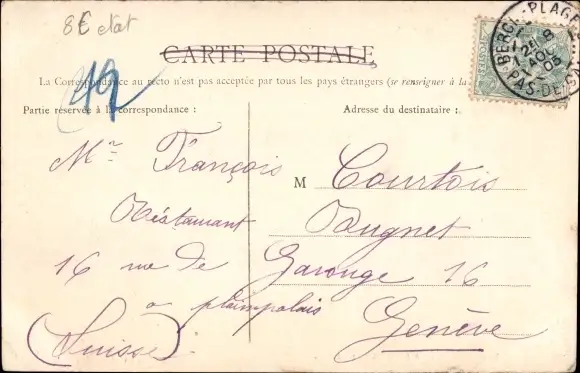 8€ etat
CARTE POSTALE
La Correspondance au recto n'est pas acceptée par tous les pays étrangers (se renseigner à la
19
Partie réservée à la correspondance :
Adresse du destinataire :
BERCK-PLAGE
PAS-DE-CALAIS
Mr François
M Courtois
Réstaurant
Bugnet
16 rue de Carouge 16
a plainpalais
Genève
(Suisse)